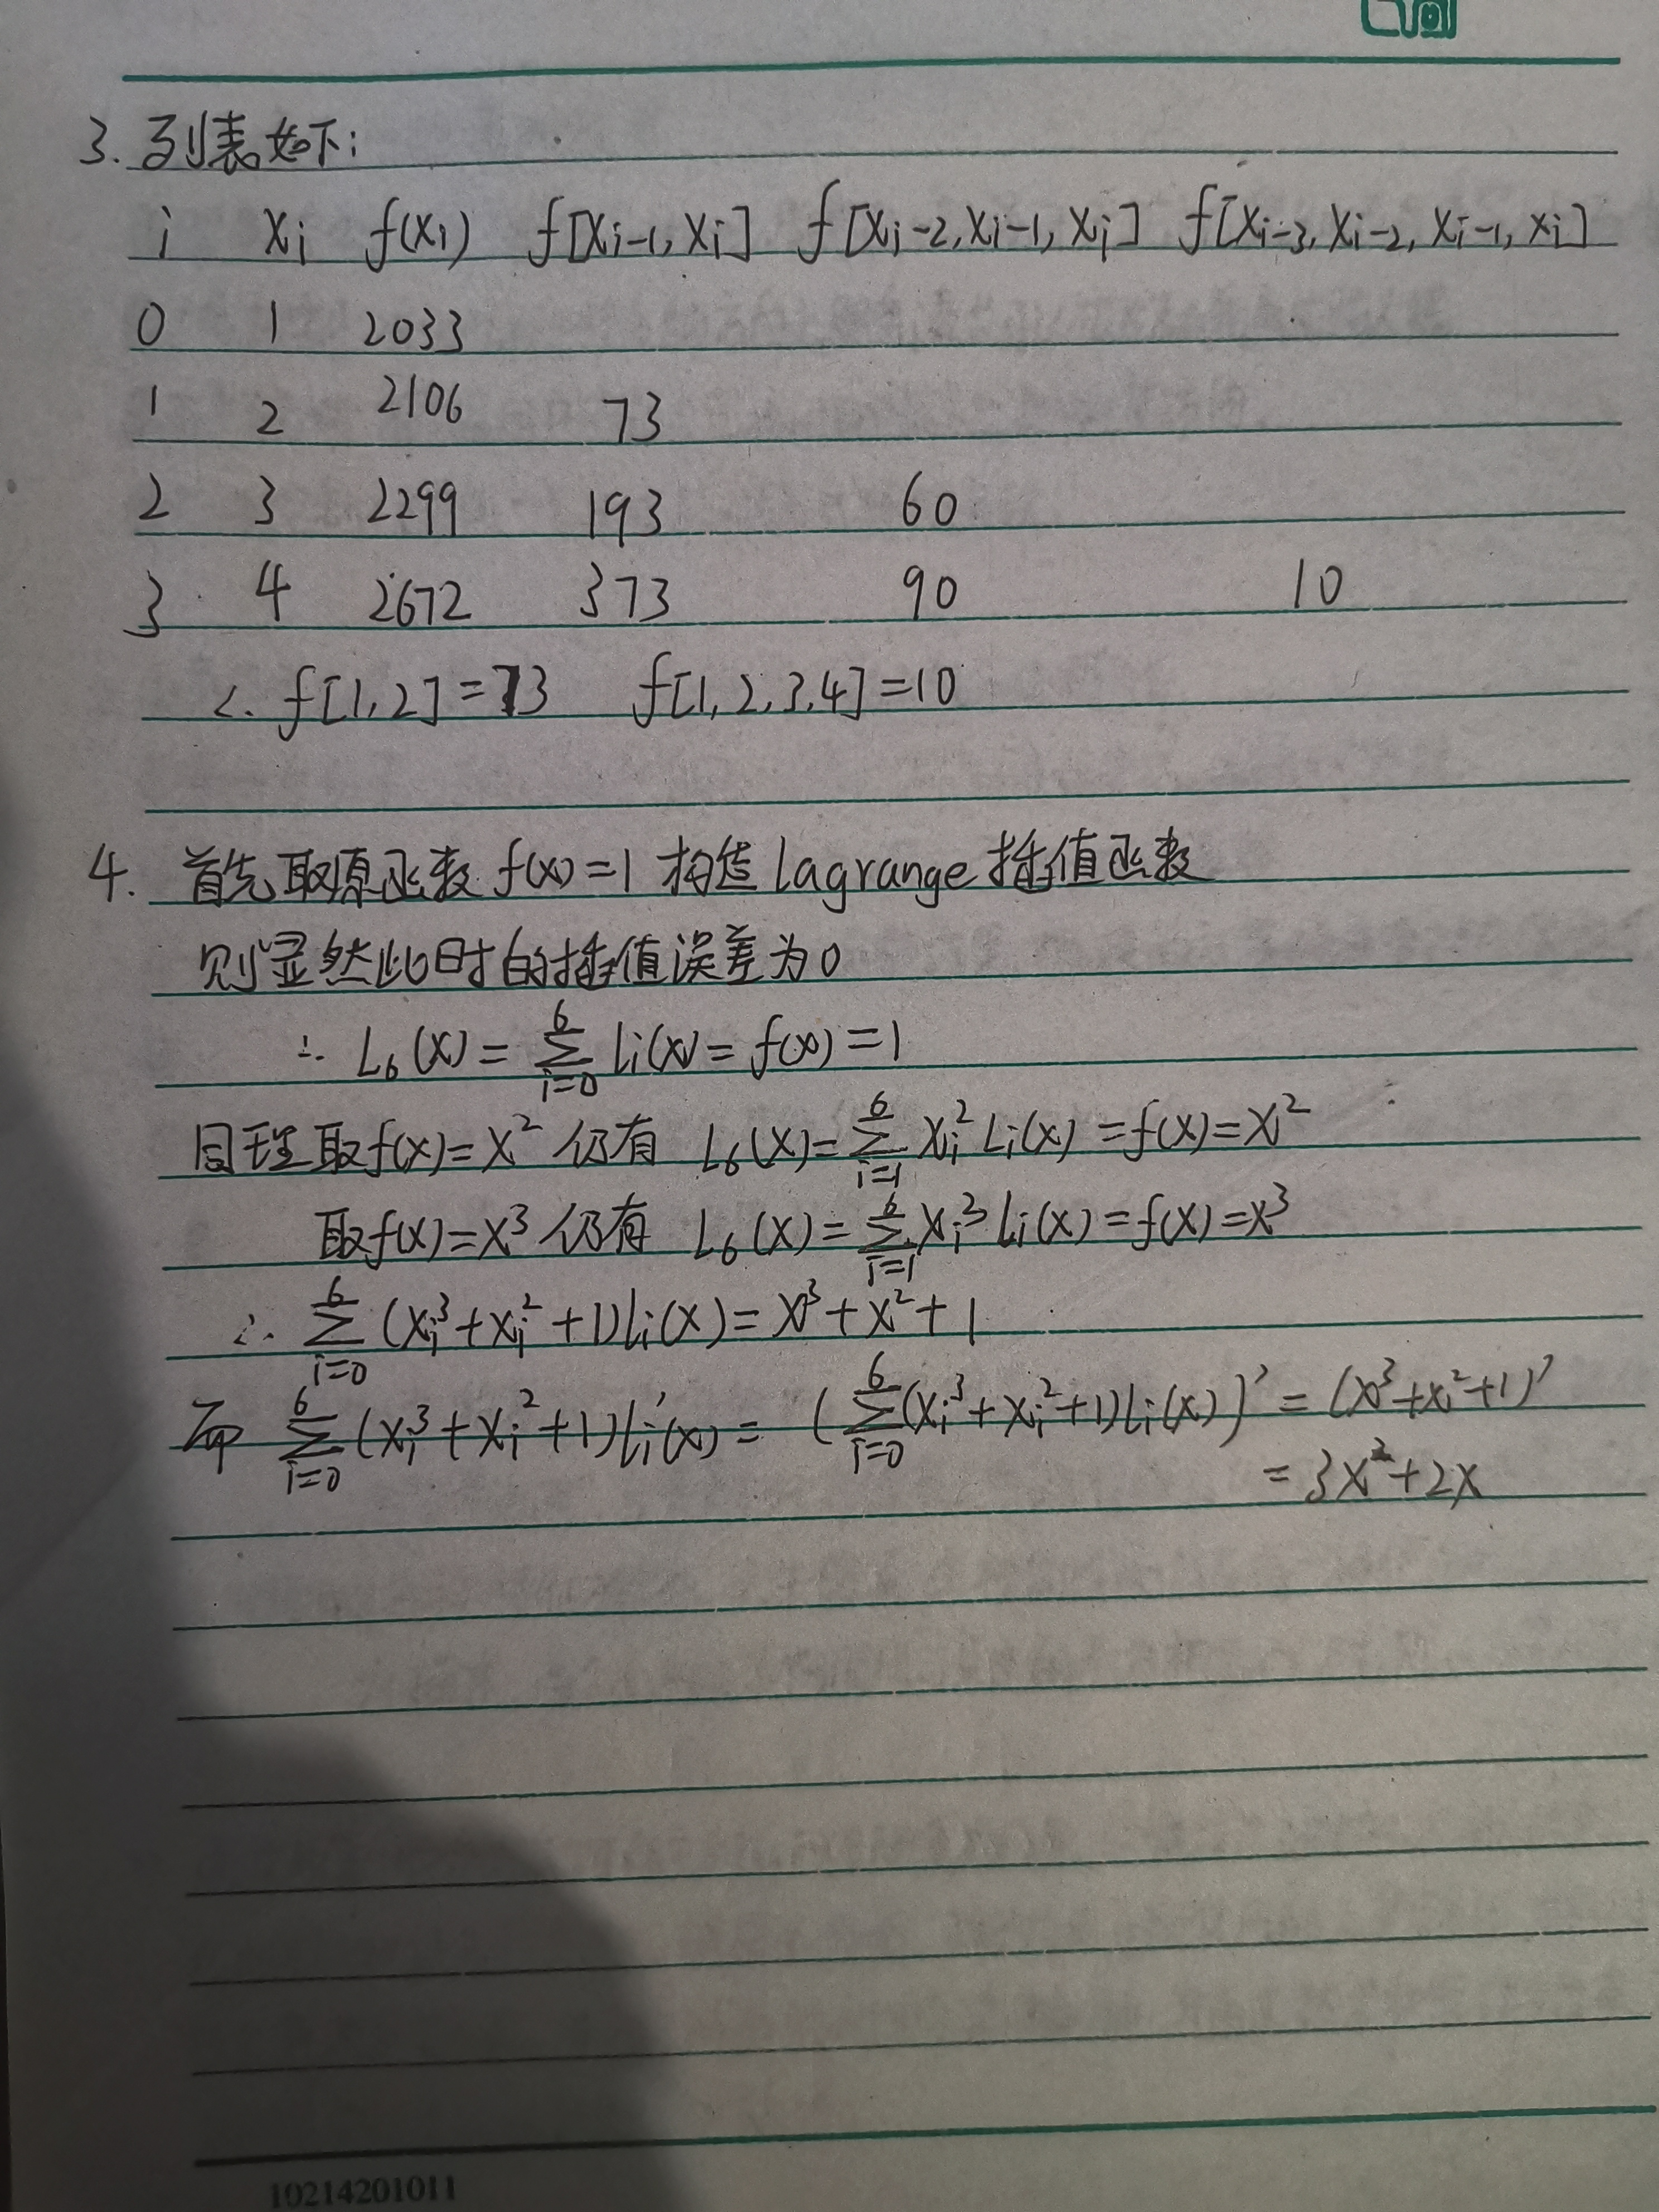 3. 列表如下:
i xi f(xi) f[xi-1, xi] f[xi-2, xi-1, xi] f[xi-3, xi-2, xi-1, xi]
0 1 2033
1 2 2106 73
2 3 2299 193 60
3 4 2672 373 90 10
∴ f[1,2]=73 f[1,2,3,4]=10
4. 首先取原函数 f(x)=1 构造 lagrange 插值函数
则显然此时的插值误差为0
∴ L₆(x) = ∑_{i=0}^{6} li(x) = f(x) = 1
同理取f(x)=x² 仍有 L₆(x)=∑_{i=1}^{6} xi² Li(x) = f(x) = x²
取f(x)=x³ 仍有 L₆(x)=∑_{i=1}^{6} xi³ li(x) = f(x) = x³
∴ ∑_{i=0}^{6} (xi³+xi²+1)li(x) = x³+x²+1
而 ∑_{i=0}^{6} (xi³+xi²+1)li'(x) = (∑_{i=0}^{6} (xi³+xi²+1)li(x))' = (x³+x²+1)'
= 3x²+2x
10214201011